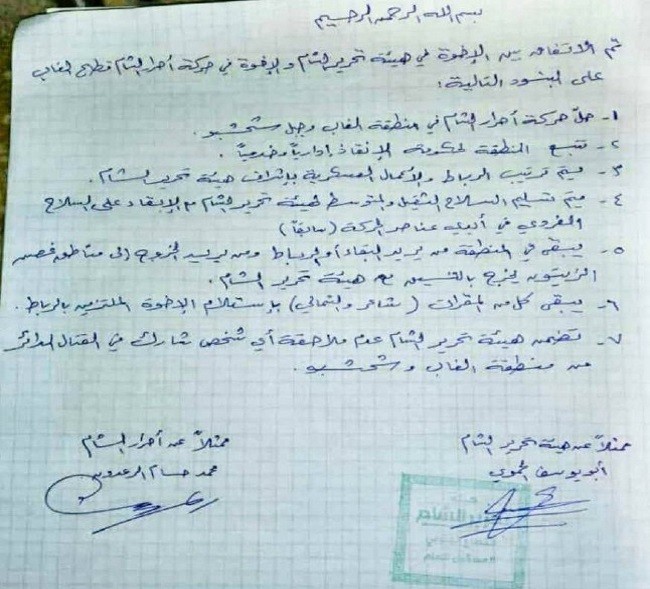 بسم الله الرحمن الرحيم
تم الاتفاق بين الإخوة في هيئة تحرير الشام والإخوة في حركة أحرار الشام قطاع الغاب
على البنود التالية:
١- حل حركة أحرار الشام في منطقة الغاب وجبل شحشبو.
٢- تتبع المنطقة لحكومة الإنقاذ إدارياً وخدمياً.
٣- يتم ترتيب الرباط والأعمال العسكرية بإشراف هيئة تحرير الشام.
٤- يتم تسليم السلاح الثقيل والمتوسط لهيئة تحرير الشام مع الإبقاء على السلاح
الفردي في أيدي عناصر الحركة (سابقاً)
٥- يبقى في المنطقة من يريد البقاء أو الرباط ومن يريد الخروج إلى مناطق غصن
الزيتون يخرج بالتنسيق مع هيئة تحرير الشام.
٦- يبقى كل من المقرات (شاهر والشمالي) بإستلام الإخوة الملتزمين بالرباط.
٧- تضمن هيئة تحرير الشام عدم ملاحقة أي شخص شارك في القتال الدائر
من منطقة الغاب وشحشبو.
ممثلاً عن هيئة تحرير الشام
أبو يوسف الحموي
ممثلاً عن أحرار الشام
محمد حسام
هيئة
تحرير الشام